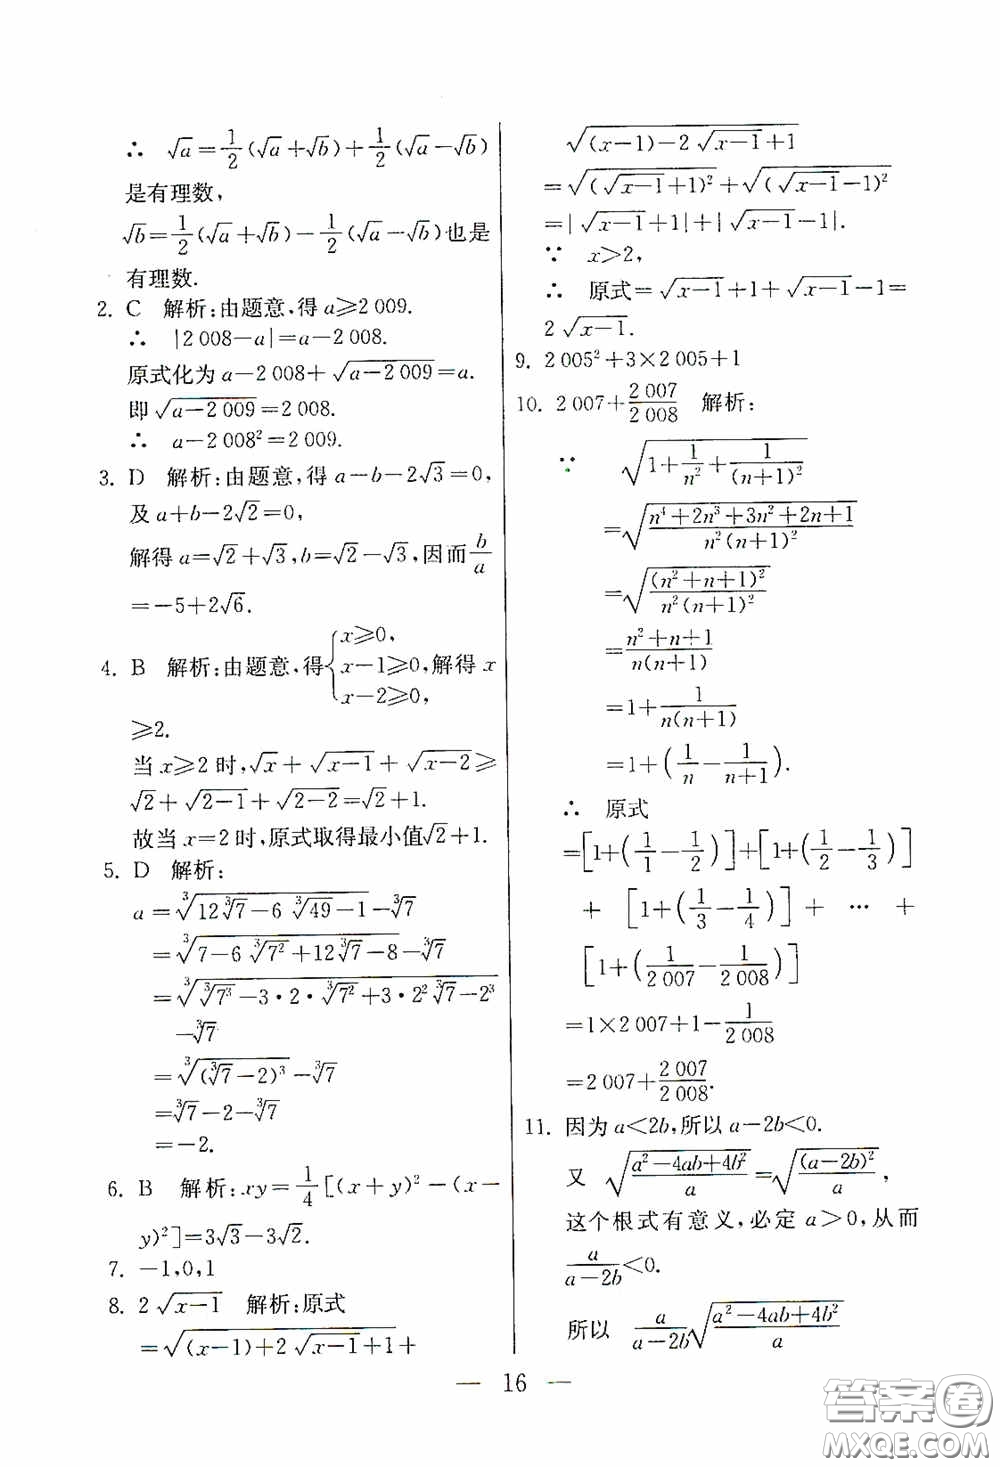 ∴ √a=1/2(√a+√b)+1/2(√a-√b)
是有理数,
√b=1/2(√a+√b)-1/2(√a-√b)也是
有理数.
2. C 解析:由题意,得a≥2 009.
∴ |2 008-a|=a-2 008.
原式化为a-2 008+√(a-2 009)=a.
即√(a-2 009)=2 008.
∴ a-2 008²=2 009.
3. D 解析:由题意,得a-b-2√3=0,
及a+b-2√2=0,
解得a=√2+√3,b=√2-√3,因而b/a
=-5+2√6.
4. B 解析:由题意,得{x≥0, x-1≥0, x-2≥0,解得x
≥2.
当x≥2时,√x+√(x-1)+√(x-2)≥
√2+√(2-1)+√(2-2)=√2+1.
故当x=2时,原式取得最小值√2+1.
5. D 解析:
a=∛(12∛7-6∛49-1)-∛7
=∛(7-6∛7²+12∛7-8)-∛7
=∛(∛7³-3·2·∛7²+3·2²∛7-2³)
-∛7
=∛((∛7-2)³)-∛7
=∛7-2-∛7
=-2.
6. B 解析:xy=1/4[(x+y)²-(x-
y)²]=3√3-3√2.
7. -1,0,1
8. 2√(x-1) 解析:原式
=√((x-1)+2√(x-1)+1)+
√((x-1)-2√(x-1)+1)
=√((√(x-1)+1)²)+√((√(x-1)-1)²)
=|√(x-1)+1|+|√(x-1)-1|.
∵ x>2,
∴ 原式=√(x-1)+1+√(x-1)-1=
2√(x-1).
9. 2 005²+3×2 005+1
10. 2 007+2 007/2 008 解析:
∵ √(1+1/n²+1/(n+1)²)
=√((n⁴+2n³+3n²+2n+1)/(n²(n+1)²))
=√((n²+n+1)²/(n²(n+1)²))
=(n²+n+1)/(n(n+1))
=1+1/(n(n+1))
=1+(1/n-1/(n+1)).
∴ 原式
=[1+(1/1-1/2)]+[1+(1/2-1/3)]
+[1+(1/3-1/4)]+…+
[1+(1/2 007-1/2 008)]
=1×2 007+1-1/2 008
=2 007+2 007/2 008.
11. 因为a<2b,所以a-2b<0.
又 √((a²-4ab+4b²)/a)=√((a-2b)²/a),
这个根式有意义,必定a>0,从而
a/(a-2b)<0.
所以 a/(a-2b)√((a²-4ab+4b²)/a)
— 16 —
答案圈
MXQE.COM